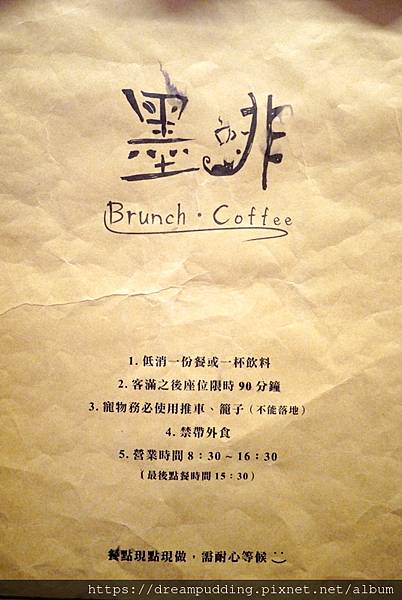 墨啡
Brunch · Coffee
1. 低消一份餐或一杯飲料
2. 客滿之後座位限時 90 分鐘
3. 寵物務必使用推車、籠子（不能落地）
4. 禁帶外食
5. 營業時間 8：30 ~ 16：30
（最後點餐時間 15：30）
餐點現點現做，需耐心等候
https://dreampudding.pixnet.net/album